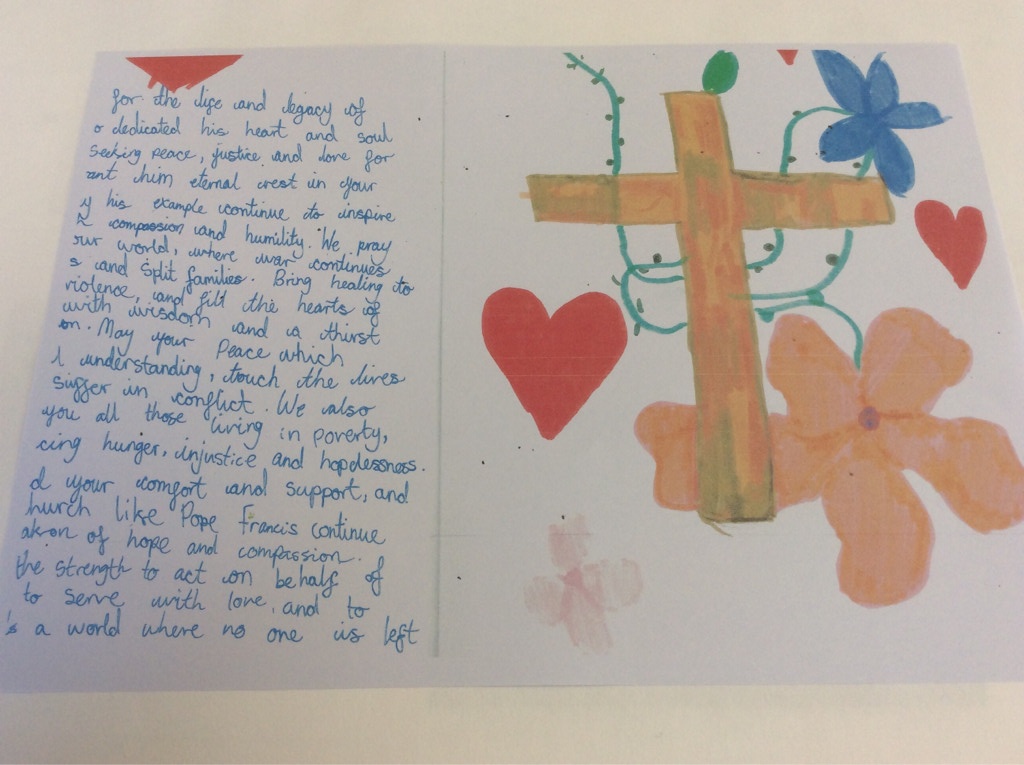 for the life and legacy of
o dedicated his heart and soul
seeking peace, justice and love for
ant him eternal rest in your
y his example continue to inspire
h compassion and humility. We pray
our world, where war continues
s and split families. Bring healing to
violence, and fill the hearts of
with wisdom and a thirst
on. May your Peace which
l understanding, touch the lives
suffer in conflict. We also
you all those living in poverty,
cing hunger, injustice and hopelessness.
d your comfort and support, and
hurch like Pope Francis continue
akon of hope and compassion.
the strength to act on behalf of
to serve with love, and to
s a world where no one is left